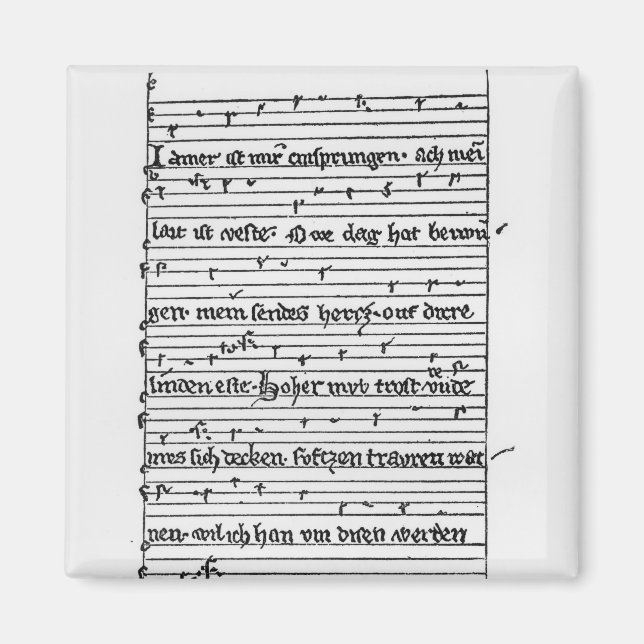 Iamer ist mir entsprungen. Ach mei
lait ist veste. O we dag hat betwu
gen. mein sendes hercz. ouf dirre
linden este. hoher mut trost
mus sich decken. softzen trauren wai
nen. wil ich han um disen werden